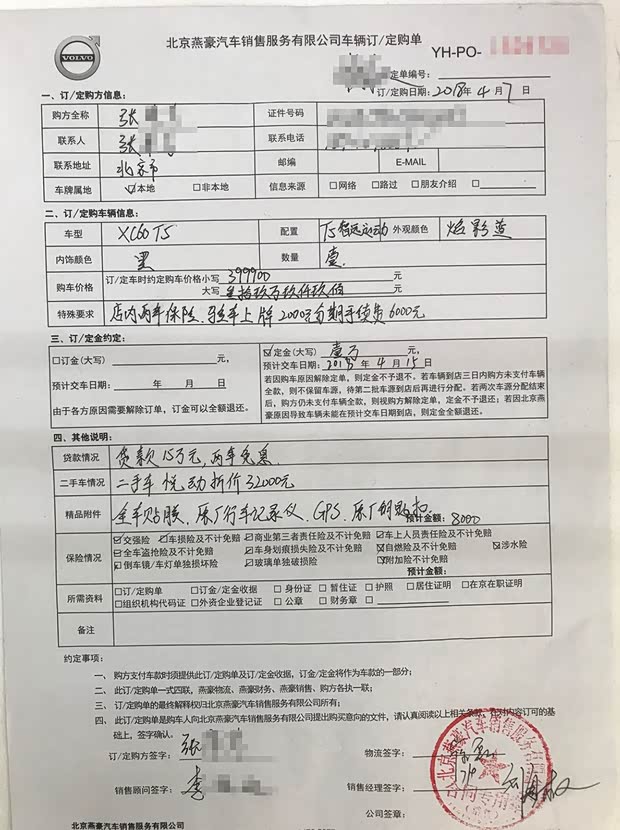 VOLVO
北京燕豪汽车销售服务有限公司车辆订/定购单
YH-PO-
定单编号：
订/定购日期：2018年4月7日
一、订/定购方信息：
购方全称 张 证件号码
联系人 张 联系电话
联系地址 北京市 邮编 E-MAIL
车牌属地 ☑本地 □非本地 信息来源 □网络 □路过 □朋友介绍 □
二、订/定购车辆信息：
车型 XC60 T5 配置 T5智远运动 外观颜色 焰影蓝
内饰颜色 黑 数量 壹
购车价格 订/定车时约定购车价格小写 399900 元
大写 叁拾玖万玖仟玖佰 元
特殊要求 店内两年保险、 上牌2000元 分期手续费6000元
三、订/定金约定：
□订金（大写） 元，
预计交车日期： 年 月 日
由于各方原因需要解除订单，订金可以全额退还。
☑定金（大写） 壹万 元，
预计交车日期：2018年4月15日
若因购车原因解除定单，则定金不予退还。若车辆到店三日内购方未支付车辆
全款，则不保留车源，待第二批车源到店后再进行分配。若两次车源分配结束
后，购方仍未支付车辆全款，则视购方解除定单，定金不予退还；若因北京燕
豪原因导致车辆未能在预计交车日期到店，则定金全额退还。
四、其他说明：
贷款情况 贷款15万元，两年免息
二手车情况 二手车 悦动 折价32000元
精品附件 全车贴膜、原厂行车记录仪、GPS、原厂钥匙扣
预计金额：8000
保险情况 ☑交强险 ☑车损险及不计免赔 ☑商业第三者责任险及不计免赔 ☑车上人员责任险及不计免赔
☑全车盗抢险及不计免赔 ☑车身划痕损失险及不计免赔 ☑自燃险及不计免赔 ☑涉水险
☑倒车镜/车灯单独损坏险 ☑玻璃单独破损险 ☑附加险不计免赔
预计金额：
所需资料 □订/定购单 □订金/定金收据 □身份证 □暂住证 □护照 □居住证明 □在京在职证明
□组织机构代码证 □外资企业登记证 □公章 □财务章 □
备注
约定事项：
一、 购方支付车款时须提供此订/定购单及订/定金收据，订金/定金将作为车款的一部分；
二、 此订/定购单一式四联，燕豪物流、燕豪财务、燕豪销售、购方各执一联；
三、 订/定购单的最终解释权归北京燕豪汽车销售服务有限公司所有；
四、 此订/定购单是购车人向北京燕豪汽车销售服务有限公司提出购买意向的文件，请认真阅读以上相关条款，在对内容订可的基
础上，签字确认。
订/定购方签字：张
物流签字：
销售顾问签字：李
销售经理签字：
公司签章：
北京燕豪汽车销售服务有限公司
合同专用章
北京燕豪汽车销售服务有限公司